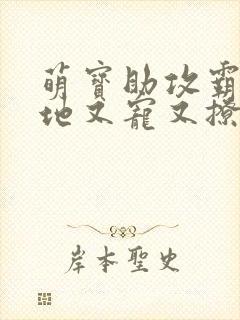 萌寶助攻霸
地又寵又撩
岸本聖史